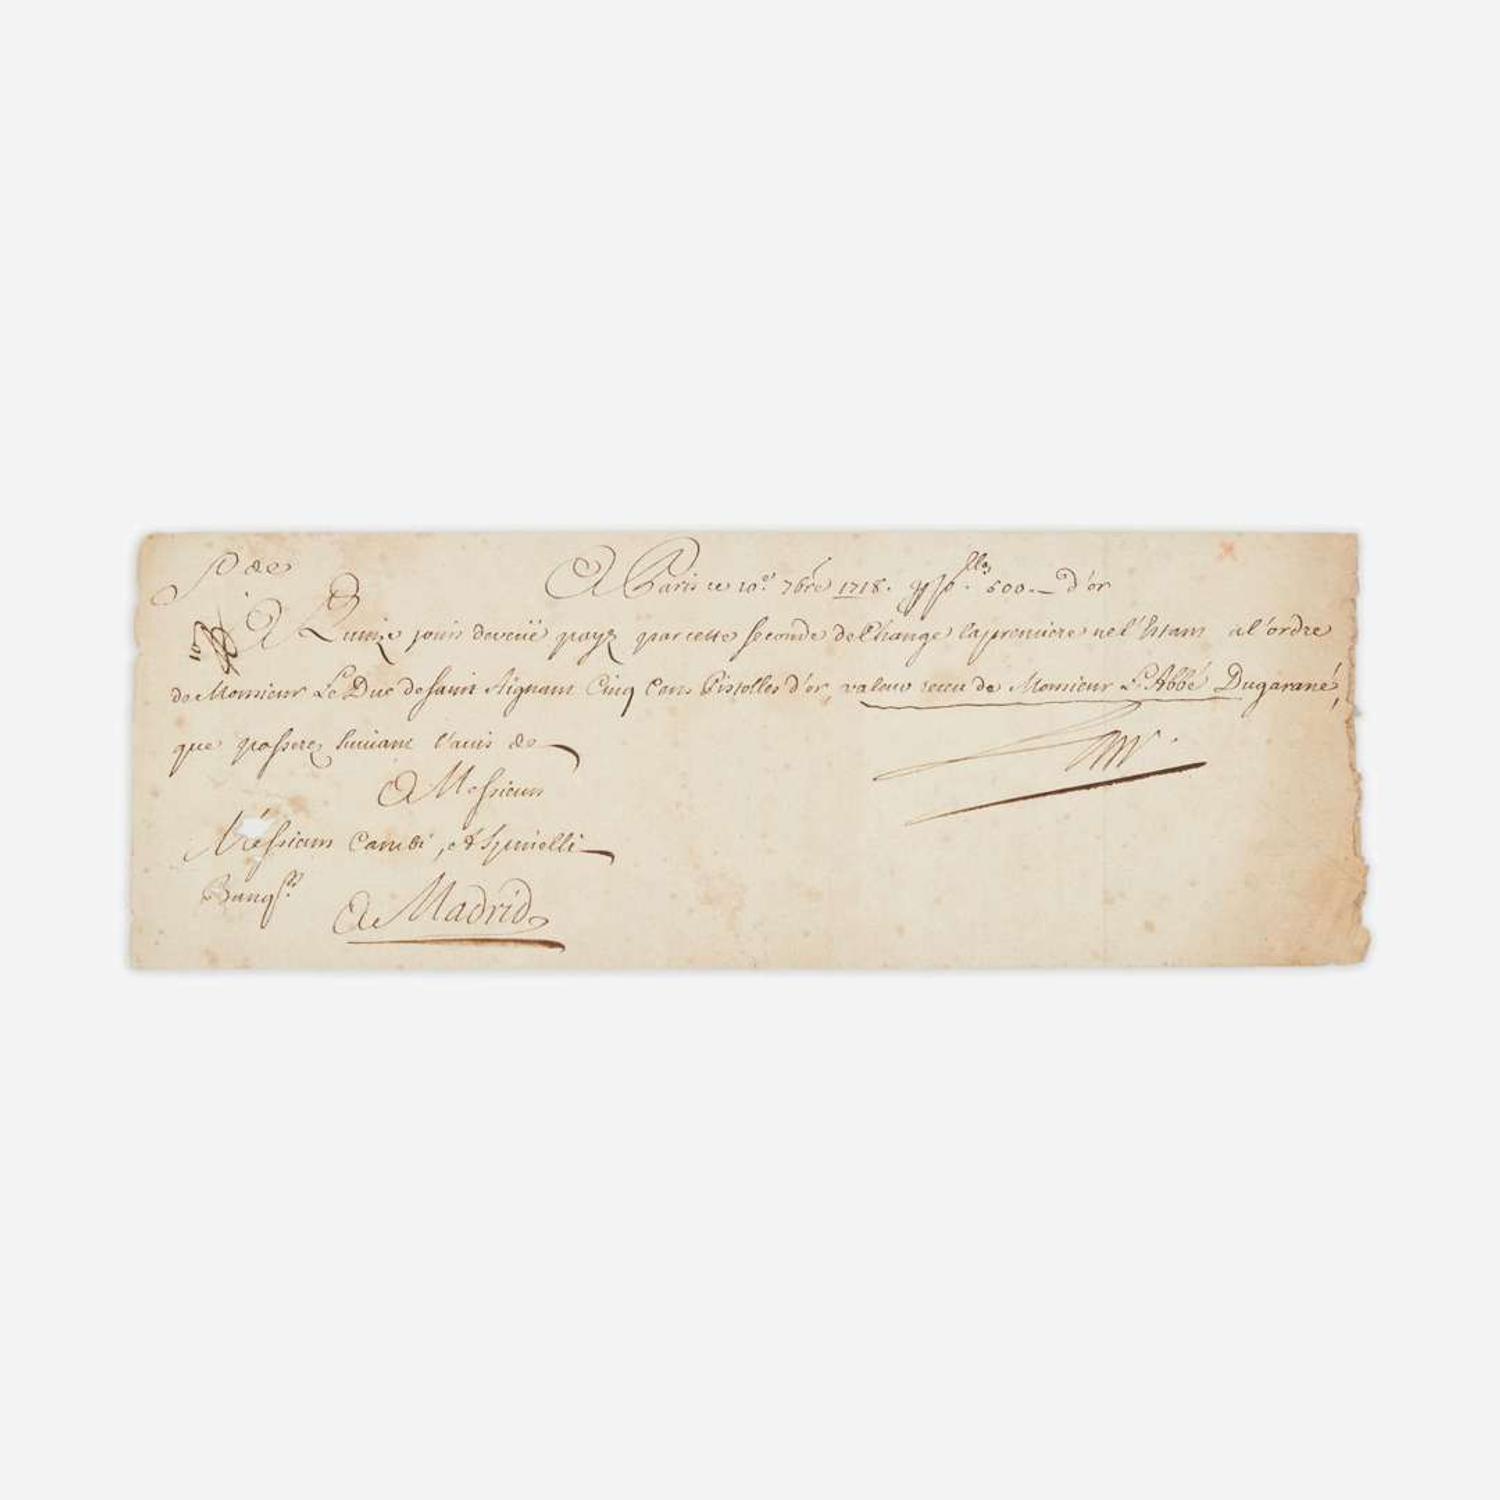 A Paris ce 10.e 7bre 1718. pp.lles 500.— d'or
A Quinze jours de veüe payez par cette seconde de Change la premiere ne l'estant a l'ordre
de Monsieur Le Duc de Saint Aignant Cinq Cens Pistolles d'or, valeur receu de Monsieur L'Abbé Dugarané,
que passerez suivant l'avis de
A Messieurs
Messieurs Cambi, et Spinelli
Banq.rs
A Madrid